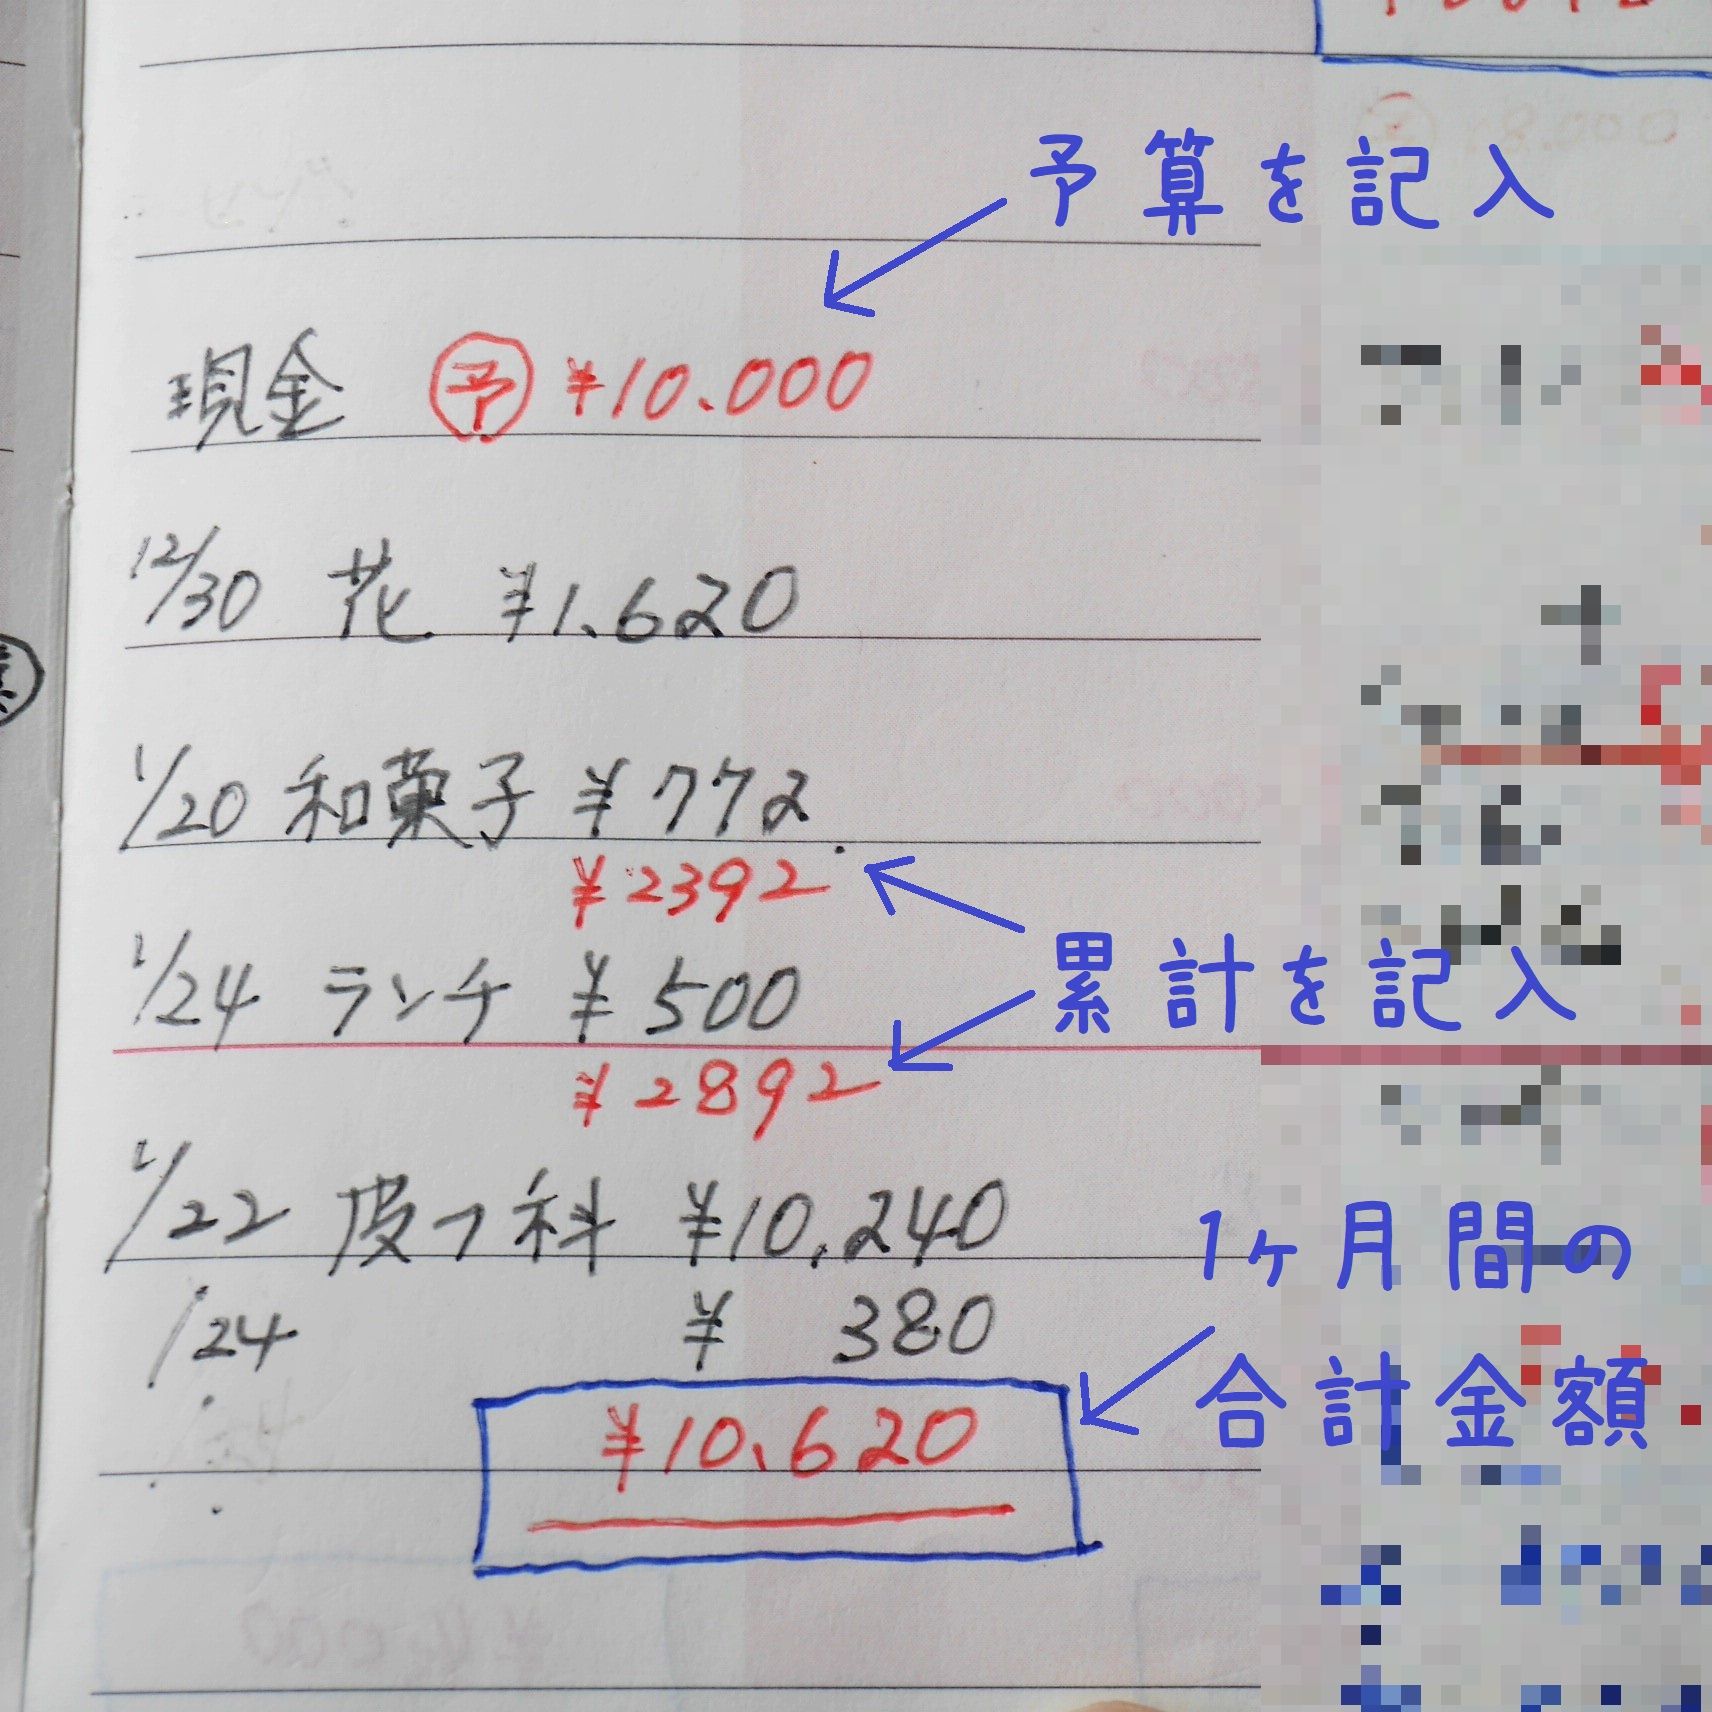 予算を記入
現金 予 ¥10.000
12/30 花 ¥1.620
1/20 和菓子 ¥772
¥2392
1/24 ランチ ¥500
累計を記入
¥2892
1/22 皮フ科 ¥10,240
1ヶ月間の
/24 ¥ 380
合計金額
¥10.620